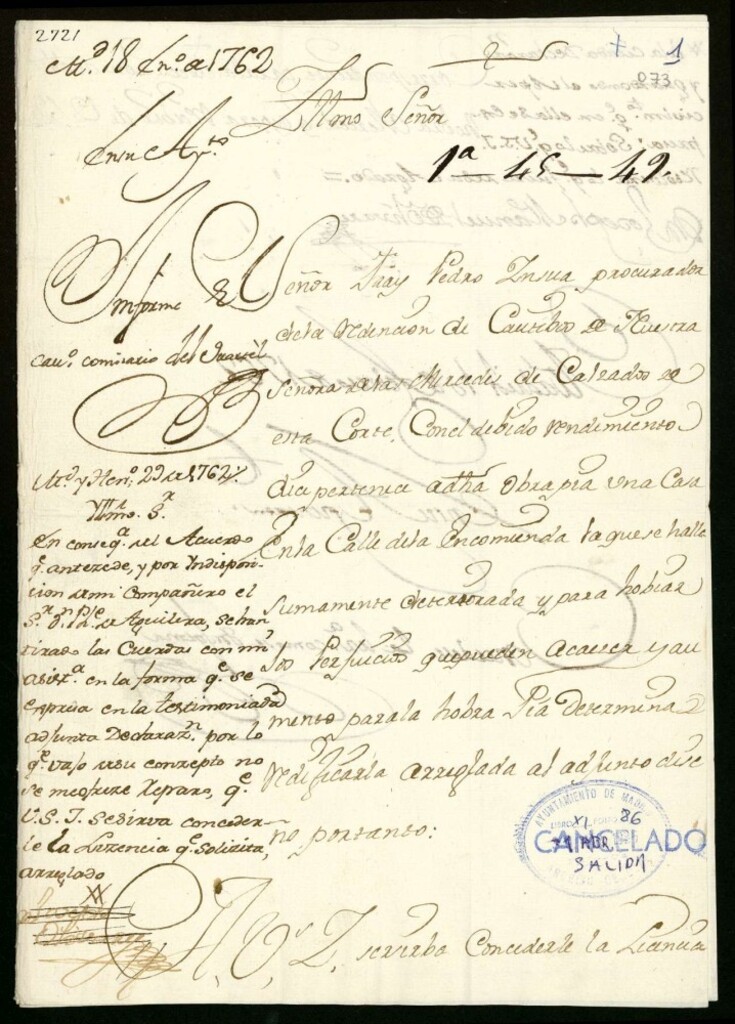 2721
M.d 18 En.o de 1762
+ 1
073
Yllmo Señor
En su Ay.to
1ª-45-49.
Informe el
Cav.o comisario del Quartel
Señor Fray Pedro Insua procurador
dela Redencion de Cautibos de Nuestra
Señora delas Mercedes de Calzados de
esta Corte, Con el debido rendimiento
dize pertenece adha Obra pia una Casa
En la Calle dela Encomienda la que se halla
sumamente deteriorada y para hobiar
los Perjuicios que pueden acaecer y au
mento para la hobra Pia Determina
redificarla arreglada al adjunto dise
no por tanto:
M.d y Hen.o 29 de 1762
Yllmo. S.r
En conseq.a del Acuerdo
q.e antezede, y por Yndisposi
cion de mi Compañero el
S.r D.n Ph.e de Aguilera, se han
tirado las Cuerdas con mi
asist.a en la forma q.e se
expresa en la testimoniada
adjunta Declaraz.n por lo
q.e vajo de su conzepto no
se me ofreze Reparo, q.e
V.S.I. se sirva conceder
le la Lizencia q.e Solizita,
arreglado
AYUNTAMIENTO DE MADRID
XI 86
CANCELADO
ABR.
SALIDA
A, V, Y, serirba Concederle la Licencia